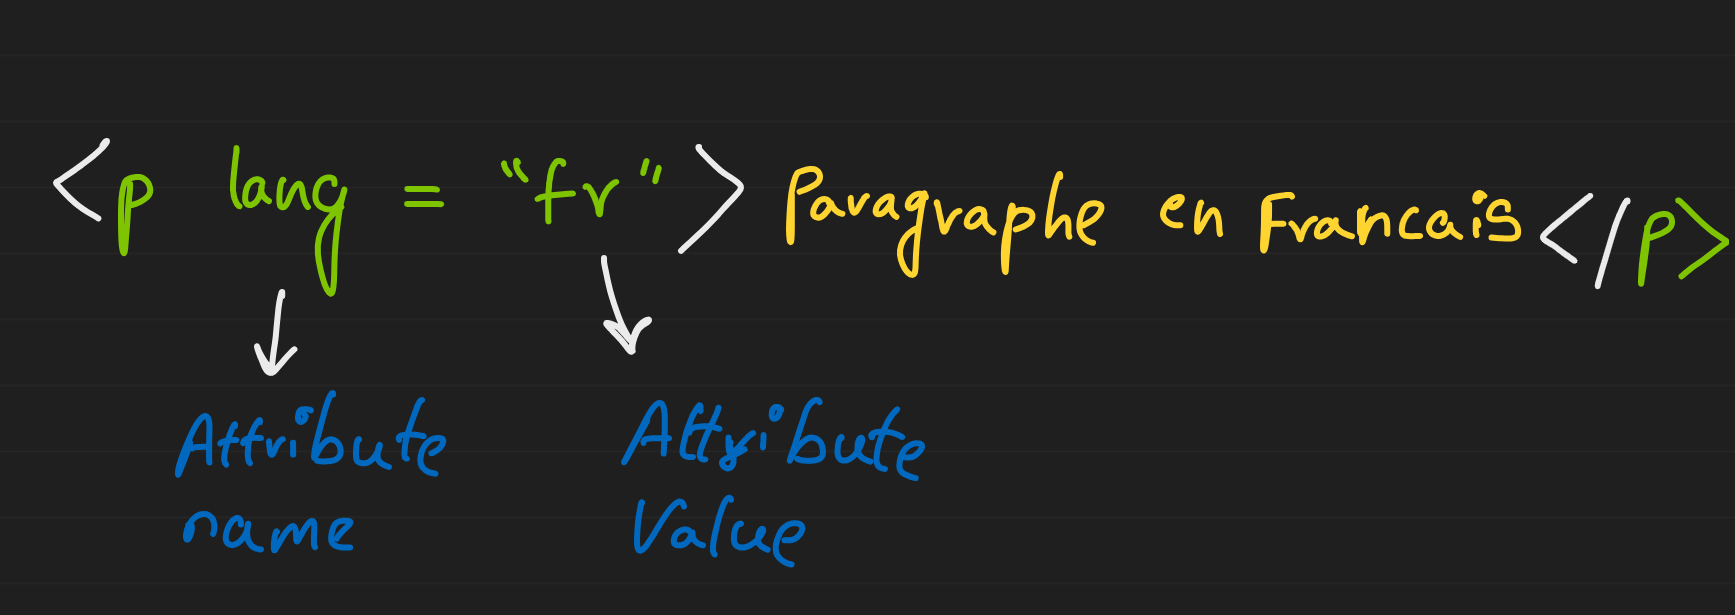 <p lang = "fr"> Paragraphe en Francais </p>
Attribute name
Attribute Value